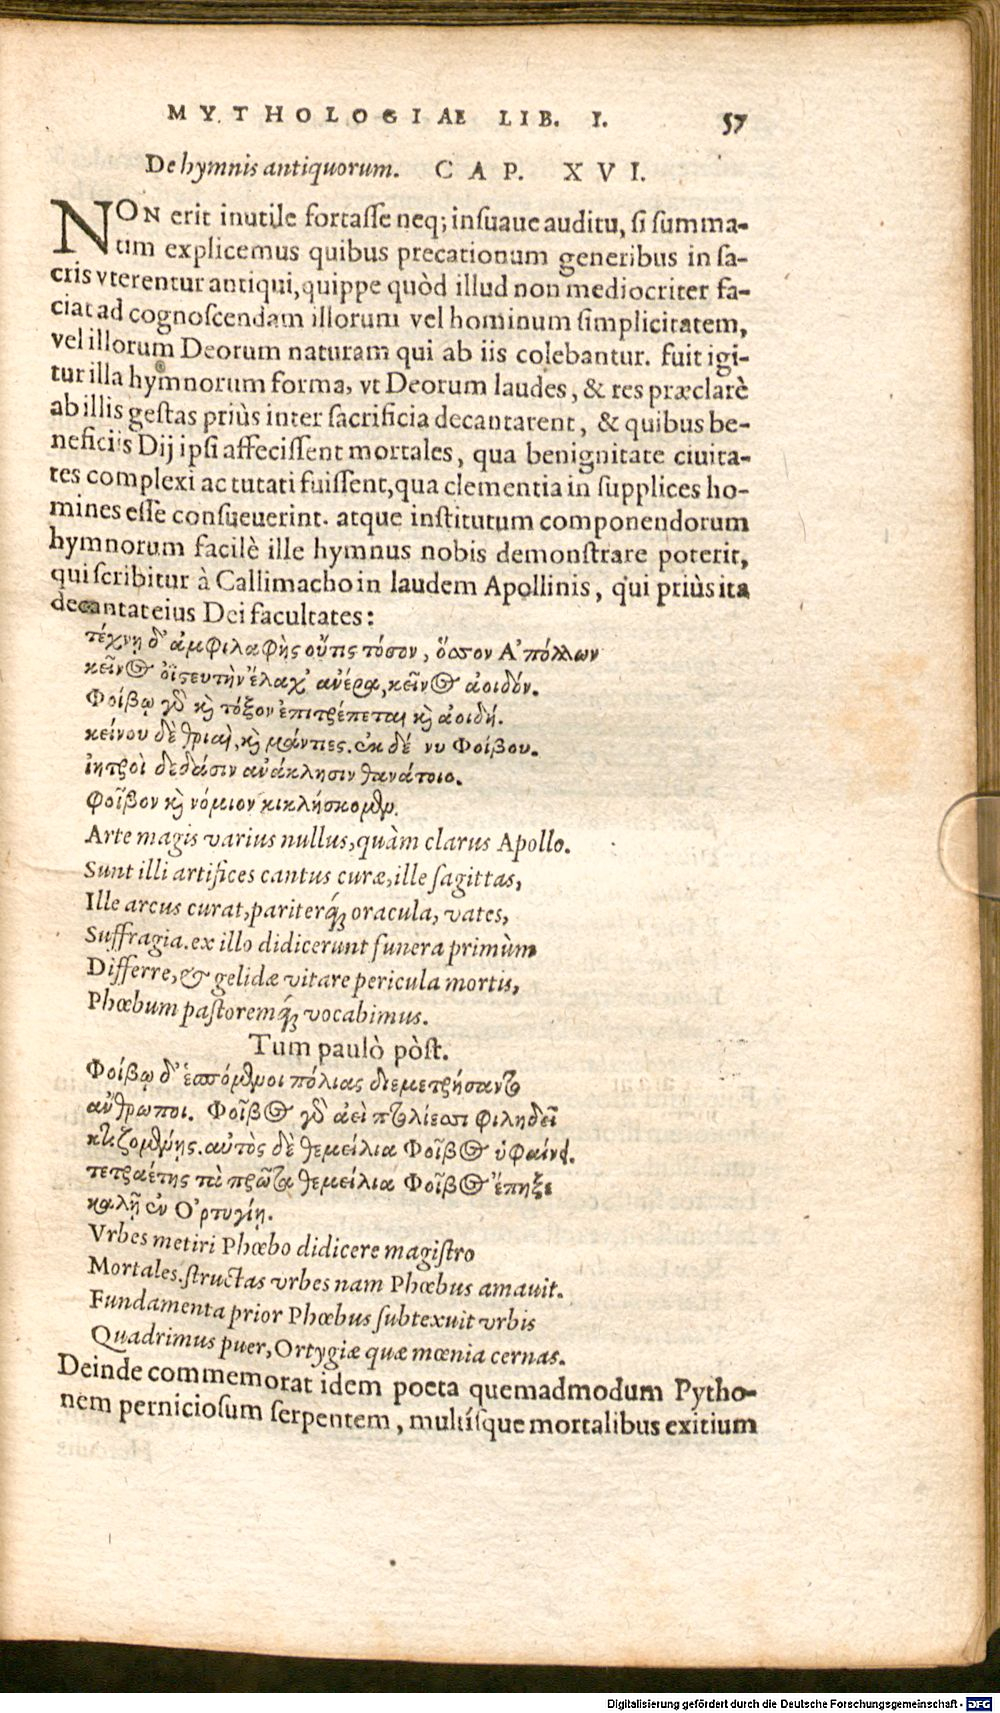 MYTHOLOGIAE LIB. I. 57
De hymnis antiquorum. CAP. XVI.
NON erit inutile fortasse neq; insuaue auditu, si summa-
tim explicemus quibus precationum generibus in sa-
cris vterentur antiqui, quippe quòd illud non mediocriter fa-
ciat ad cognoscendam illorum vel hominum simplicitatem,
vel illorum Deorum naturam qui ab iis colebantur. fuit igi-
tur illa hymnorum forma, vt Deorum laudes, & res præclarè
ab illis gestas priùs inter sacrificia decantarent, & quibus be-
neficiis Dij ipsi affecissent mortales, qua benignitate ciuita-
tes complexi ac tutati fuissent, qua clementia in supplices ho-
mines esse consueuerint. atque institutum componendorum
hymnorum facilè ille hymnus nobis demonstrare poterit,
qui scribitur à Callimacho in laudem Apollinis, qui priùs ita
decantat eius Dei facultates:
τέχνῃ δ' ἀμφιλαφὴς οὔτις τόσον, ὅσον Α'πόλλων
κεῖνος ὀϊστευτὴν ἔλαχ' ἀνέρα, κεῖνος ἀοιδόν.
Φοίβῳ γὸ κὶ τόξον ἐπιτρέπεται κὶ ἀοιδή.
κείνου δὲ θριαὶ, κὶ μάντιες. ἐκ δέ νυ Φοίβου.
ἰητροὶ δεδάσιν ἀνάκλησιν θανάτοιο.
Φοῖβον κὶ νόμιον κικλήσκομεν.
Arte magis varius nullus, quàm clarus Apollo.
Sunt illi artifices cantus curæ, ille sagittas,
Ille arcus curat, pariterq́; oracula, vates,
Suffragia. ex illo didicerunt funera primùm
Differre, & gelidæ vitare pericula mortis,
Phœbum pastoremq́; vocabimus.
Tum paulò pòst.
Φοίβῳ δ' ἑσπόμενοι πόλιας διεμετρήσαντο
ἄνθρωποι. Φοῖβος γὸ ἀεὶ πτολίεσσι φιληδεῖ
κτιζομένῃς. αὐτὸς δὲ θεμείλια Φοῖβος ὑφαίνει.
τετραέτης τὰ πρῶτα θεμείλια Φοῖβος ἔπηξε
καλῇ ἐν Ο'ρτυγίῃ.
Vrbes metiri Phœbo didicere magistro
Mortales. structas vrbes nam Phœbus amauit.
Fundamenta prior Phœbus subtexuit vrbis
Quadrimus puer, Ortygiæ quæ mœnia cernas.
Deinde commemorat idem poeta quemadmodum Pytho-
nem perniciosum serpentem, multisque mortalibus exitium
Digitalisierung gefördert durch die Deutsche Forschungsgemeinschaft - DFG